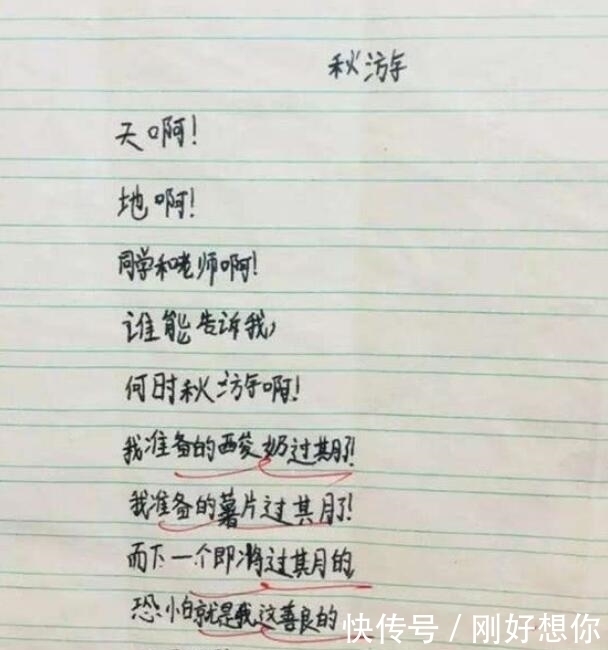 秋游
天啊！
地啊！
同学和老师啊！
谁能告诉我，
何时秋游啊！
我准备的酸奶过期了！
我准备的薯片过期了！
而下一个即将过期的
恐怕就是我这善良的
快传号／刚好想你